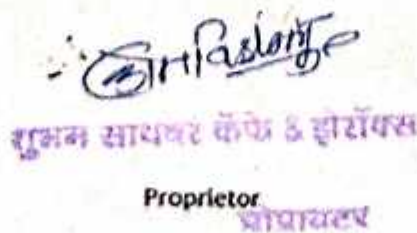 शुभम सायबर कॅफे & झेरॉक्स
Proprietor
प्रोप्रायटर